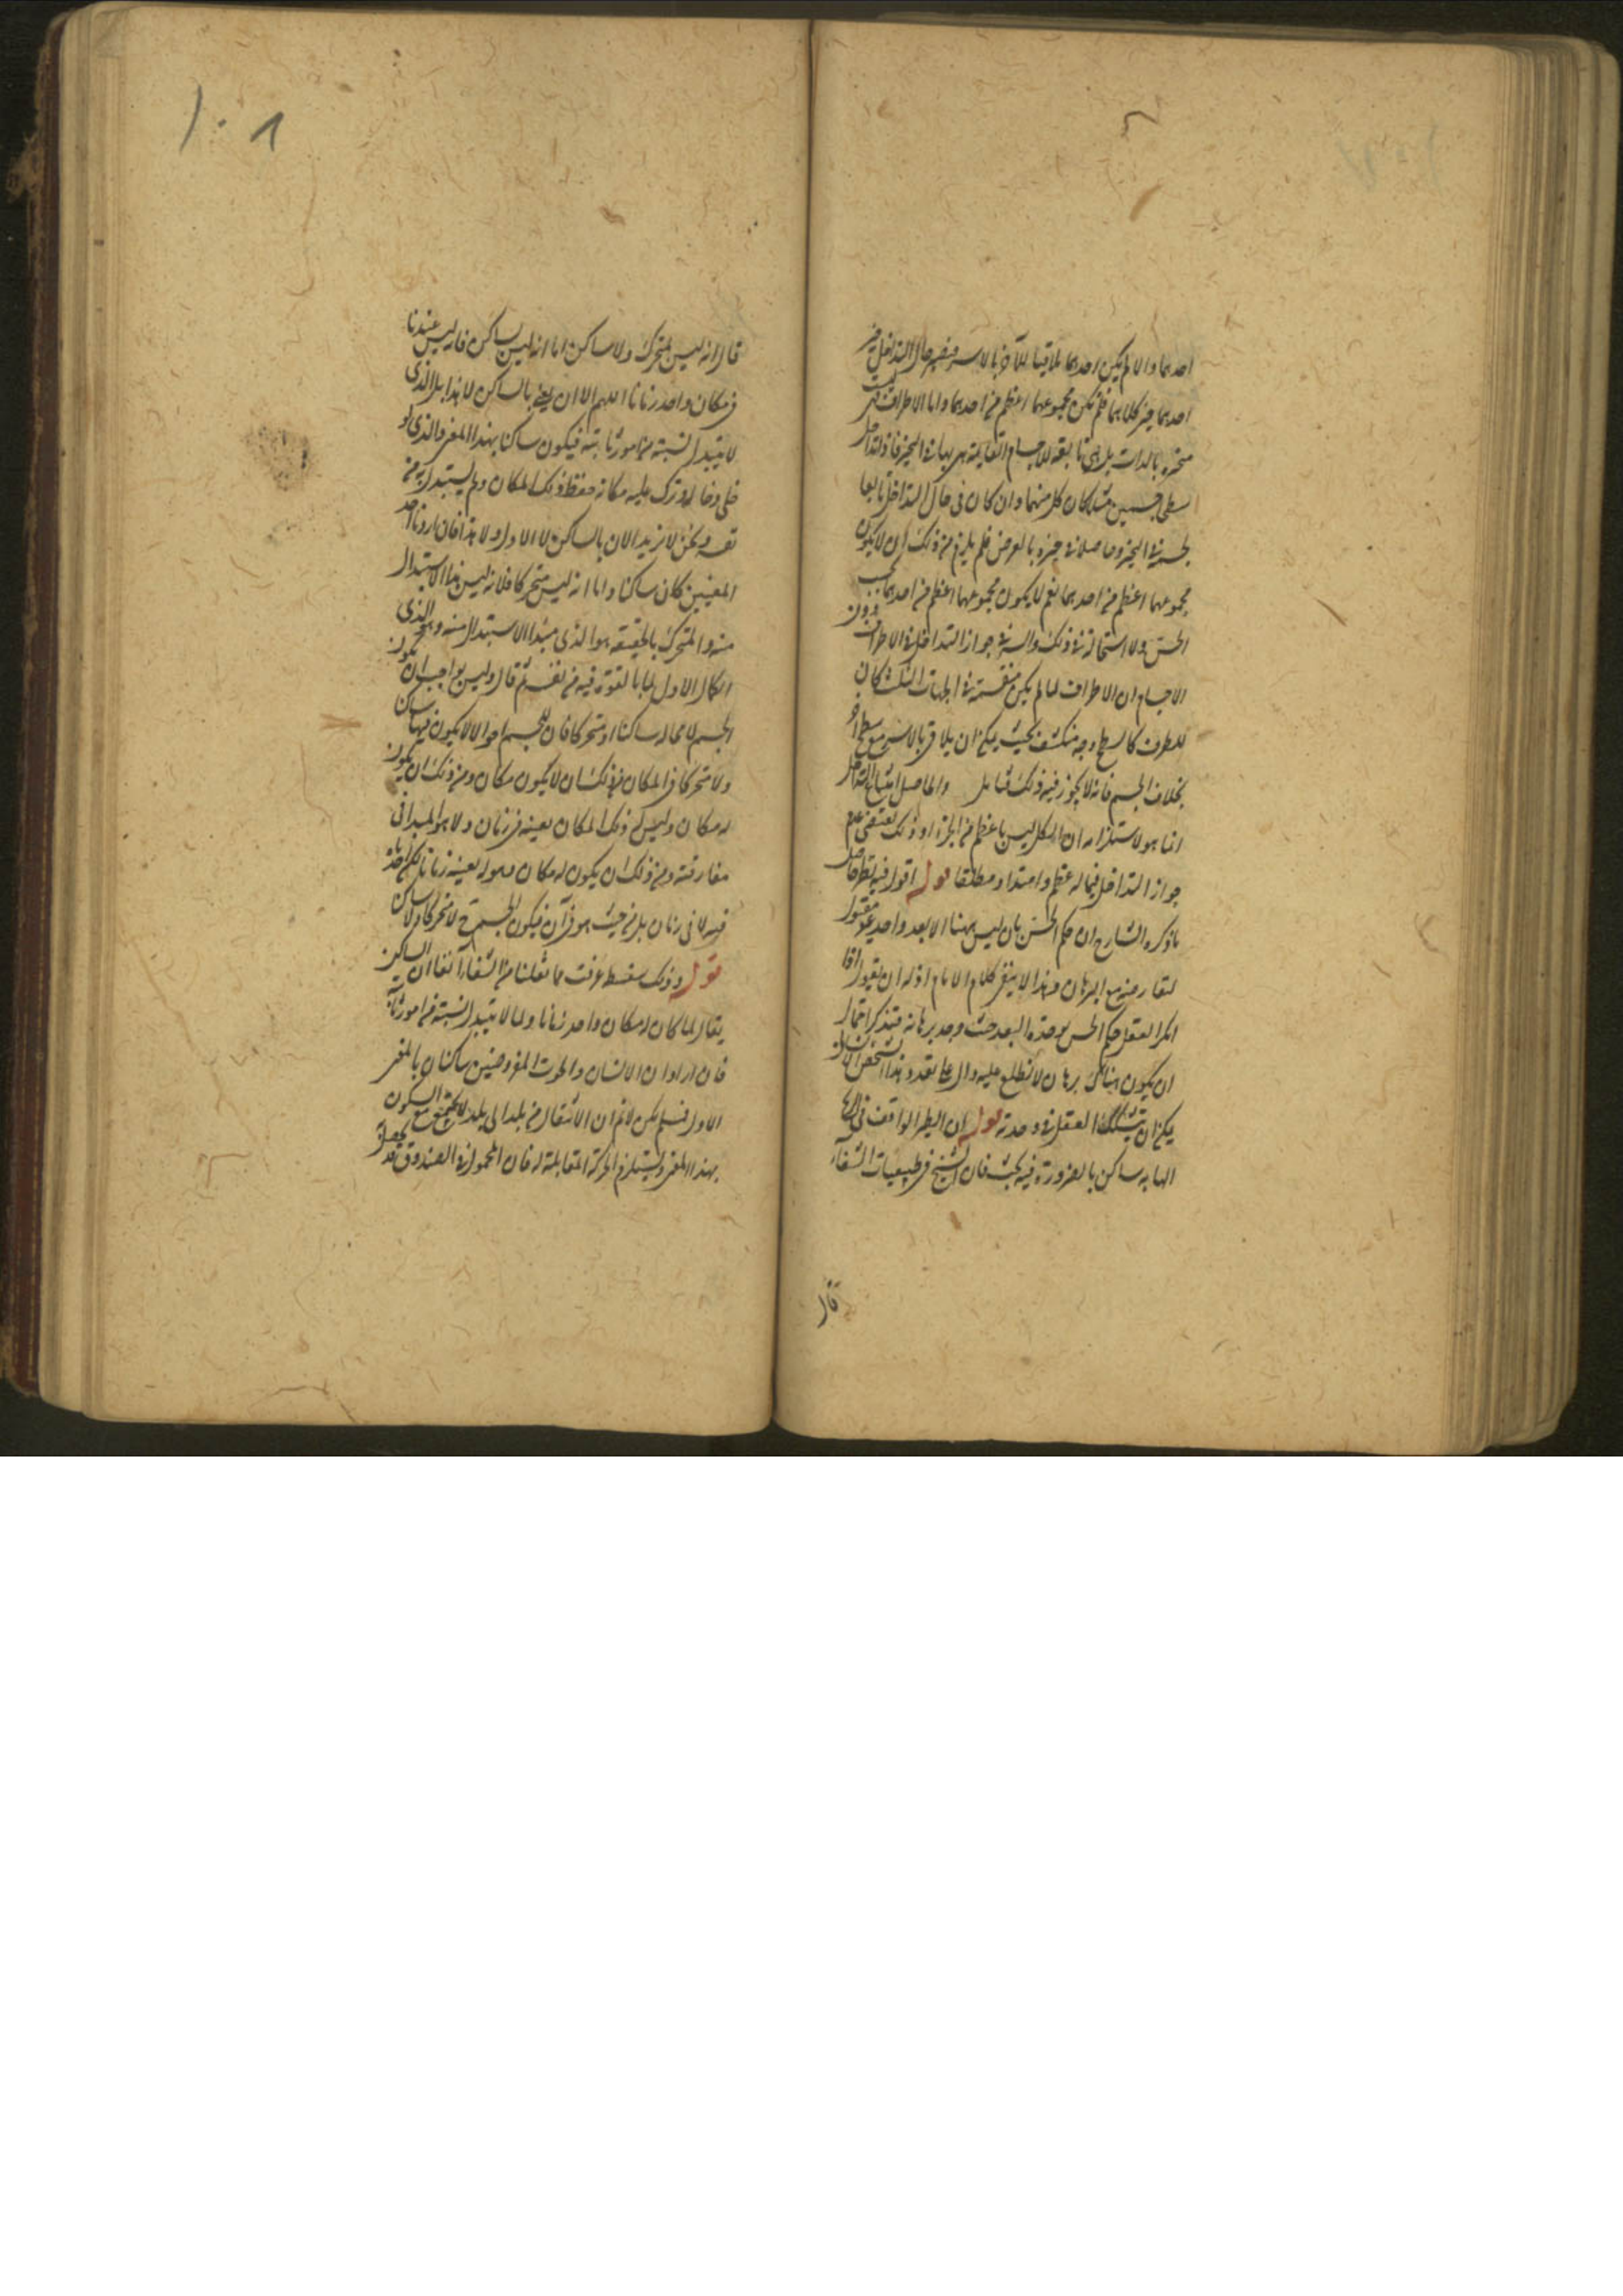 احدهما والا لم يكن احدهما ملاقيا للآخر بالاسر فيصير حال التداخل حيز
احدهما حيز كلاهما فلم يكن مجموعهما اعظم من احدهما واما الاطراف فليست
متحيزة بالذات بل هي تابعة للاجسام القايمة هي بها في التحيز فاذا تداخل
سطحي جسمين مثلا كان كل منهما وان كان في حال التداخل تابعا
لجسمه في التحيز وحاصلا في حيزه بالعرض فلم يلزم من ذلك ان لا يكون
مجموعهما اعظم من احدهما نعم لا يكون مجموعهما اعظم من احدهما بحسب
الحس ولا استحالة في ذلك والسر في جواز التداخل في الاطراف دون
الاجسام ان الاطراف لما لم يكن منقسمة في الجهات الثلث كان
للطرف كالسطح وجه منكشف بحيث يمكن ان يلاقي بالاسر مع سطح آخر
بخلاف الجسم فانه لا يجوز فيه ذلك فتامل والحاصل امتناع التداخل
انما هو لاستلزامه ان الكل ليس باعظم من الجزء وذلك يقتضي عدم
جواز التداخل فيما له عظم وامتداد مطلقا قوله اقول فيه نظر حاصل
ما ذكره الشارح ان حكم الحس بان ليس ههنا الا بعد واحد غير مقبول
لتعارضه مع البرهان وهذا لا ينفي كلام الامام اذ له ان يقول اذا
انكر العقل حكم الحس بوحدة البعد حيث وجد برهانه فتذكر احتمال
ان يكون هناك برهان لا نطلع عليه دال على تعدد هذا الشخص الانسان
يمكن ان يتشكك العقل في وحدته قوله ان الطير الواقف في الهواء
الهابه ساكن بالضرورة فيه بحث فان الشيخ في طبيعيات الشفاء
قال
١٠٨
قال انه ليس بمتحرك ولا ساكن اما انه ليس بساكن فانه ليس عندنا
في مكان واحد زمانا اللهم الا ان يعني بالساكن لا هذا بل الذي
لا يتبدل نسبته من امور ثابتة فيكون ساكنا بهذا المعنى والذي لو
خلى وحاله وترك عليه مكانه حفظ ذلك المكان ولم يستبدل به من
نفسه ونحن لا نريد الان بالساكن لا الاول ولا هذا فان اردنا احد
المعنيين كان ساكنا واما انه ليس متحركا فلانه ليس مبدا الاستبدال
منه والمتحرك بالحقيقة هو الذي مبدا الاستبدال منه وهو الذي
الكمال الاول لما بالقوة فيه من نفسه ثم قال وليس بواجب ان يكون
الجسم لا محالة ساكنا او متحركا فان للجسم احوالا لا يكون فيها ساكن
ولا متحركا في المكان من ذلك ان لا يكون مكان ومن ذلك ان يكون
له مكان وليس له ذلك المكان بعينه في زمان ولا هو المبدا في
مفارقته ومن ذلك ان يكون له مكان وهو له بعينه زمانا لكن اخذناه
فيه لا في زمان بل من حيث هو في آن فيكون الجسم ح لا متحركا ولا ساكن
قوله وذلك سفسطة عرفت مما نقلنا من الشفا آنفا ان الساكن
يقال لما كان له مكان واحد زمانا ولما لا يتبدل نسبته من امور ثابتة
فان اراد ان الانسان والحوت المفروضين ساكنان بالمعنى
الاول فمسلم لكن لا نم ان الانتقال من بلد الى بلد لا يجتمع مع السكون
بهذا المعنى ويستلزم الحركة المقابلة له فان المحمول في الصندوق قد يحصل